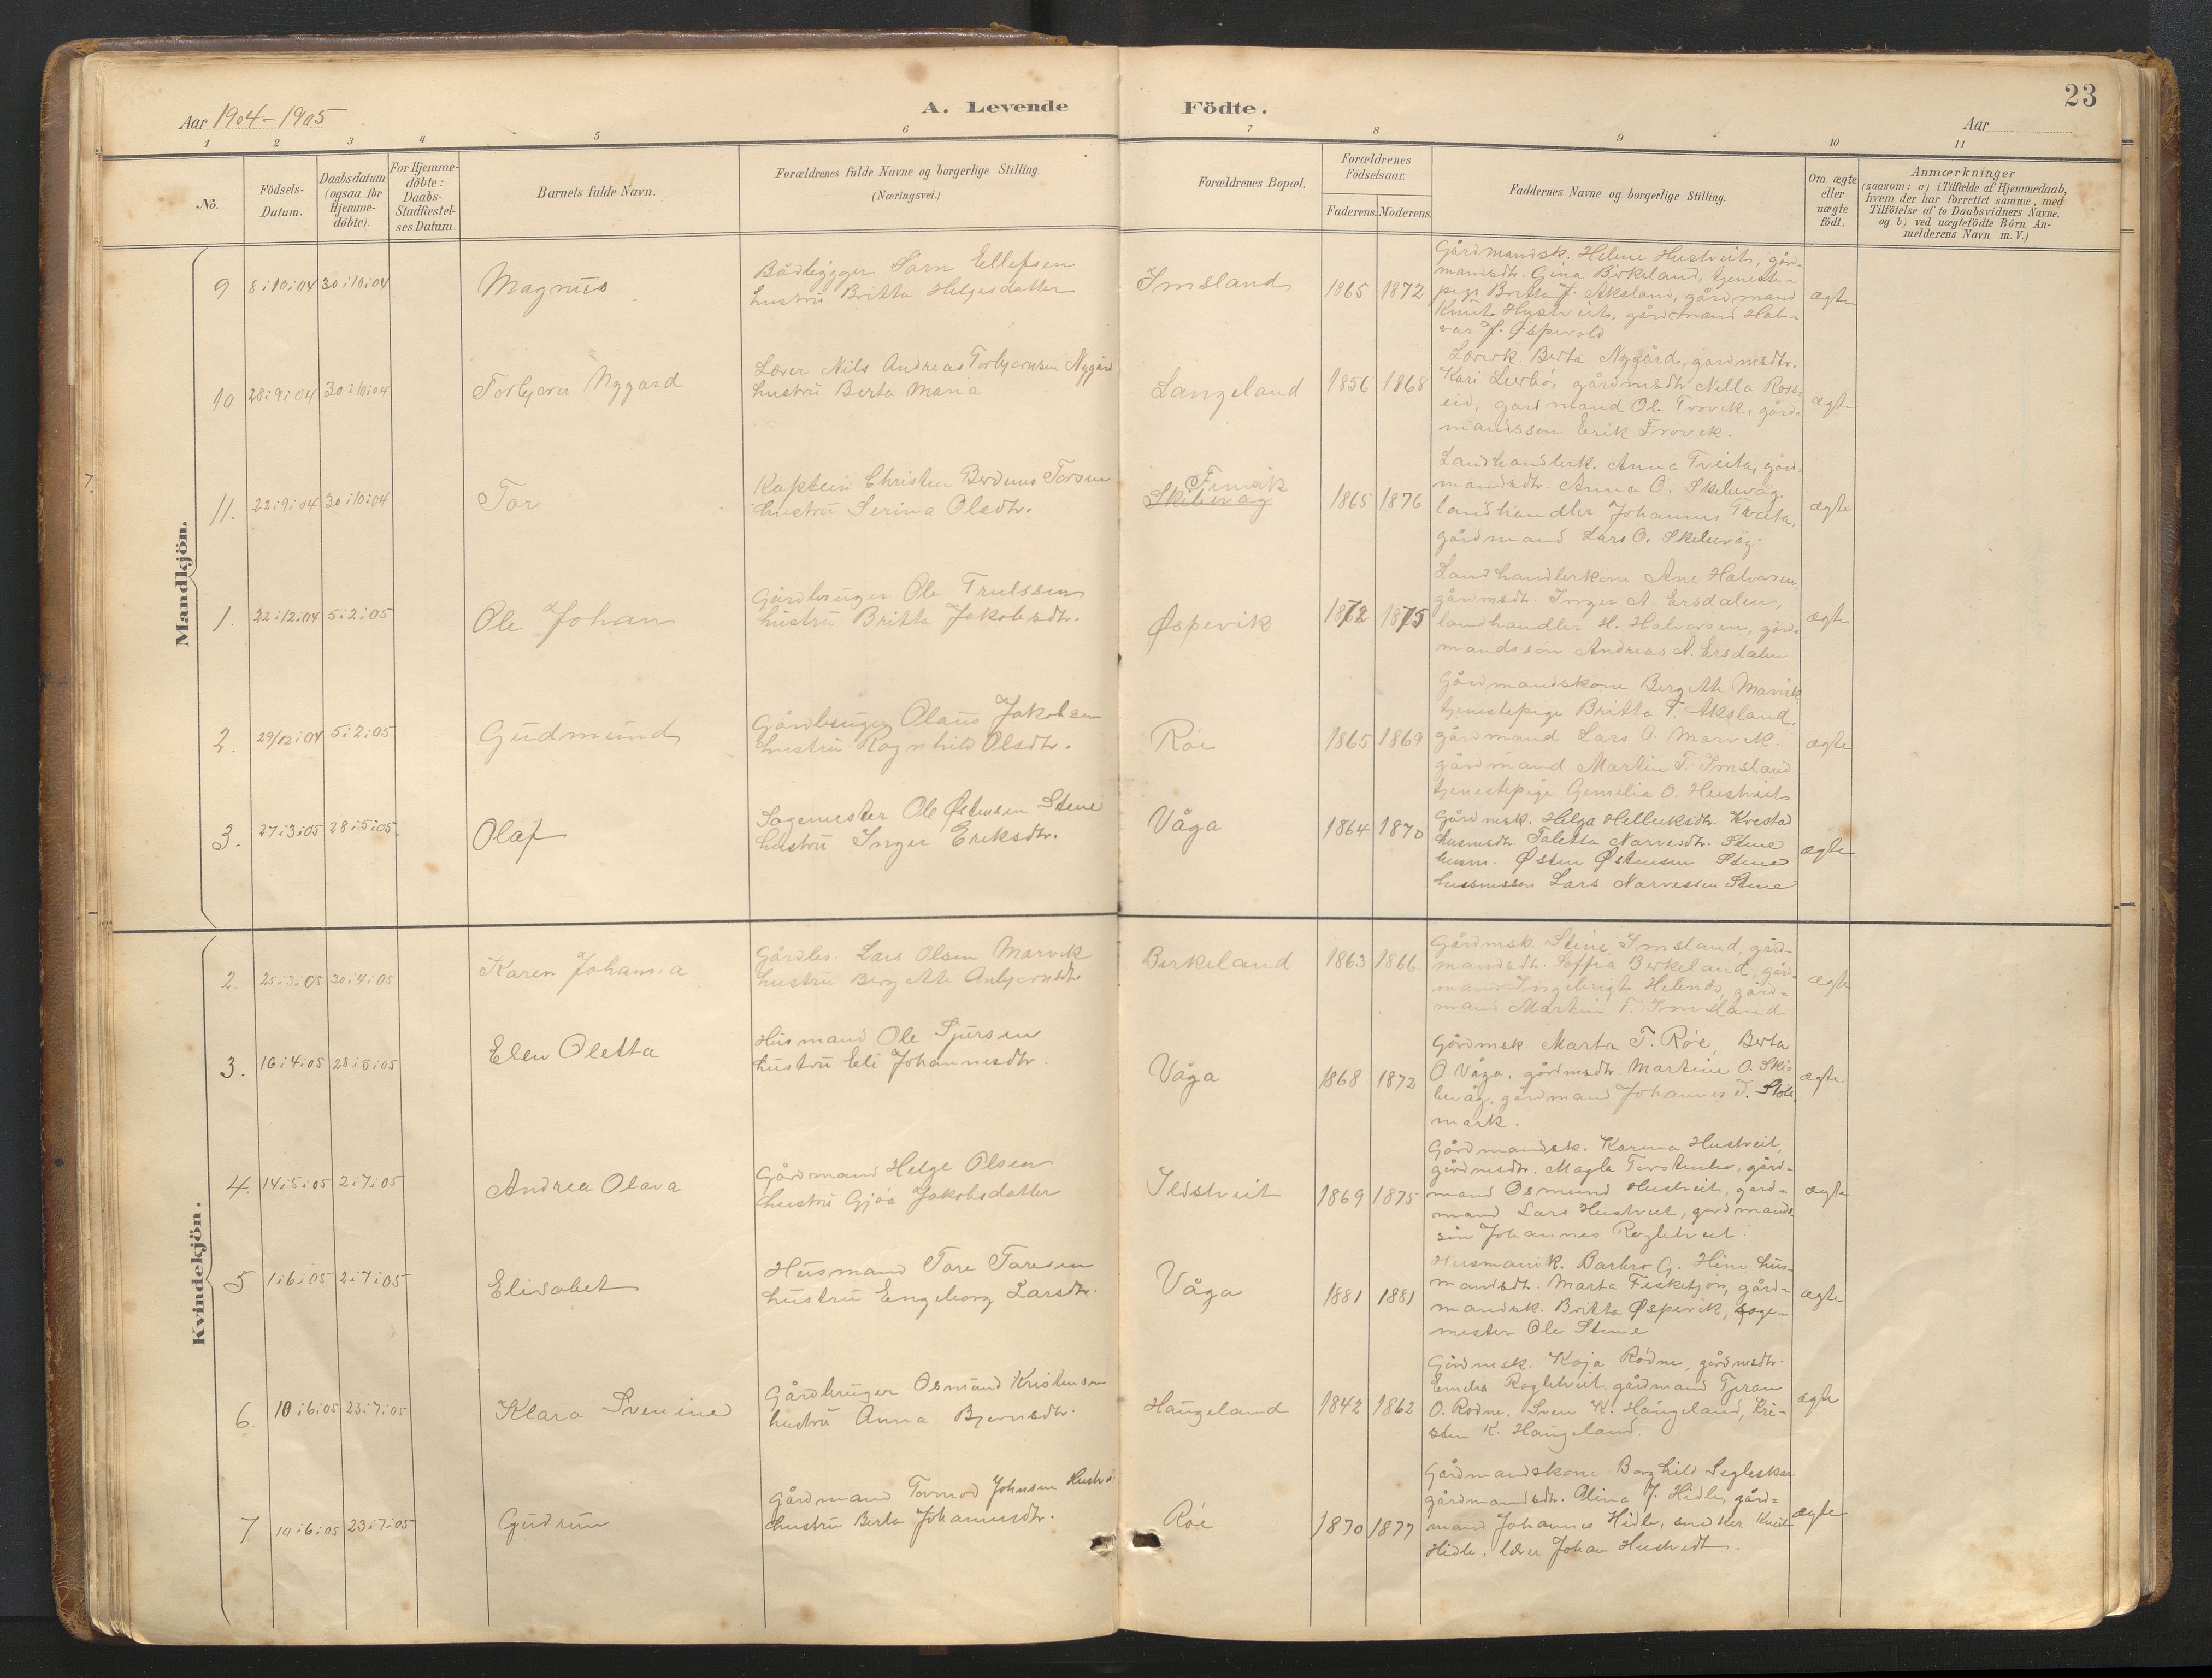 23
Aar 1904-1905
A. Levende Födte.
Aar
1 2 3 4 5 6 7 8 9 10 11
No.
Födsels-
Datum.
Daabsdatum
(ogsaa for
Hjemme-
döbte).
For Hjemme-
döbte:
Daabs-
Stadfæstel-
ses Datum.
Barnets fulde Navn.
Forældrenes fulde Navne og borgerlige Stilling.
(Næringsvei.)
Forældrenes Bopæl.
Forældrenes
Födselsaar.
Faderens. Moderens.
Faddernes Navne og borgerlige Stilling.
Om ægte
eller
uægte
födt.
Anmærkninger
(saasom: a) i Tilfælde af Hjemmedaab,
hvem der har forrettet samme, med
Tilföielse af to Daabsvidners Navne,
og b) ved uægtefödte Börn An-
melderens Navn m. V.)
Mandkjön.
9 8:10:04 30:10:04
Magnus
Bådbygger Sørn Ellefsen
hustru Britta Helgesdatter
Imsland
1865 1872
Gårdmandsk. Helene Hustveit, går-
mandsdtr. Gina Birkeland, tjeneste-
pige Britta J. Aksland, gårdmand
Knut Hustveit, gårdmand Hal-
vor J. Øspevold
ægte
10 28:9:04 30:10:04
Torbjørn Nygård
Lærer Nils Andreas Torbjørnsen Nygård
hustru Berta Maria
Langeland
1856 1868
Lærerk Berta Nygård, gårdmsdtr.
Kari Leerbó, gårdmsdtr Nella Ross-
eid, gårdmand Ole Frovik, gård-
mandssøn Erik Frovik.
ægte
11. 22:9:04 30:10:04
Tor
Kaptein Christen Berdines Torsen
hustru Serina Olsdtr.
Finvik
Skibevåg
1865 1876
Landhandlerk. Anna Tveita, gård-
mandsdtr. Anna O. Skibevåg.
landhandler Johannes Tveita,
gårdmand Lars O. Skibevåg.
ægte
1. 22:12:04 5:2:05
Ole Johan
Gårdbruger Ole Trulssen
hustru Britta Jakobsdtr.
Øspevik
1872 1875
Landhandlerkone Ane Halvorsen,
gårdmsdtr. Inger A. Ersdalen,
landhandler H. Halvorsen, gård-
mandssøn Andreas A. Ersdalen
ægte
2. 29/12:04 5:2:05
Gudmund
Gårdbruger Olaus Jakobsen
hustru Ragnhild Olsdtr.
Røe
1865 1869
Gårdmandskone Bergitte Marvik
tjenestepige Britta T. Aksland,
gårdmand Lars O. Marvik.
gårdmand Martin T. Imsland
tjenestepige Gemelia O. Hustveit
ægte
3. 27:3:05 28:5:05
Olaf
Sagemester Ole Østensen Stene
hustru Inger Eriksdtr.
Våga
1864 1870
Gårdmsk. Helga Helleiksdtr. Kvestad
husmsdtr. Taletta Narvesdtr. Stene
husm. Østen Østensen Stene
husmssøn Lars Narvessen Stene
ægte
Kvindekjön.
2. 25:3:05 30:4:05
Karen Johanna
Gårdbr. Lars Olsen Marvik
hustru Bergitte Anbjørnsdtr.
Birkeland
1863 1866
Gårdmsk. Stine Imsland, gård-
mandsdtr. Soffia Birkeland, gård-
mand Ingebrigt Helends, gård-
mand Martin T. Imsland
ægte
3. 16:4:05 28:5:05
Elen Oletta
Husmand Ole Sjursen
hustru Eli Johannesdtr.
Våga
1868 1872
Gårdmsk Marta T. Røe, Berta
O Våga, gårdmsdtr. Martine O. Ski-
bevåg, gårdmand Johannes J. Støle
mark.
ægte
4. 14:5:05 2:7:05
Andrea Olava
Gårdmand Helge Olsen
hustru Gjøa Jakobsdatter
Ilstveit
1869 1875
Gårdmandsk. Karina Hustveit,
gårdmsdtr. Magla, gård-
mand Osmund Hustveit, gård-
mand Lars Hustveit, gårdmands
søn Johannes Rogletveit.
ægte
5 1:6:05 2:7:05
Elisabet
Husmand Tore Toresen
hustru Engeborg Larsdtr.
Våga
1881 1881
Husmandk. Barbro G. Hine, hus-
mandsdtr. Marta Fisketjøn, gård-
mandsk. Britta Øspevik, sage-
mester Ole Stene
ægte
6. 10:6:05 23:7:05
Klara Svenine
Gårdbruger Osmund Kristensen
hustru Anna Bjørnsdtr.
Haugeland
1842 1862
Gårdmsk. Kaja Rødne, gårdmsdtr.
Emelia Rogletveit, gårdmand Tjeran
O. Rødne, Sven K. Haugeland, Kri-
sten K. Haugeland.
ægte
7 10:6:05 23:7:05
Gudrun
Gårdmand Tormod Johnsen
hustru Berta Johannesdtr.
Røe
1870 1877
Gårdmandskone Borghild Segleskar
gårdmandsdtr. Olina J. Hidle, gård-
mand Johannes Hidle, snedker Knut
Hidle, lærer Johan Hustvedt.
ægte